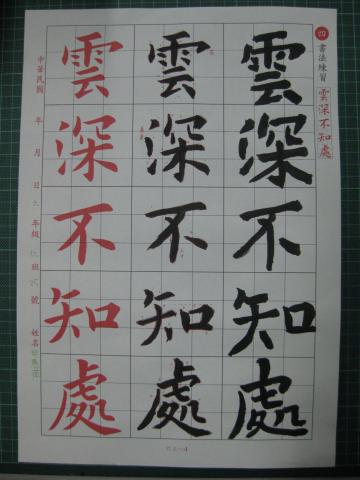 四 書法練習 雲深不知處
雲深不知處
雲深不知處
雲深不知處
中華民國 年 月 日 年級 班 號 姓名